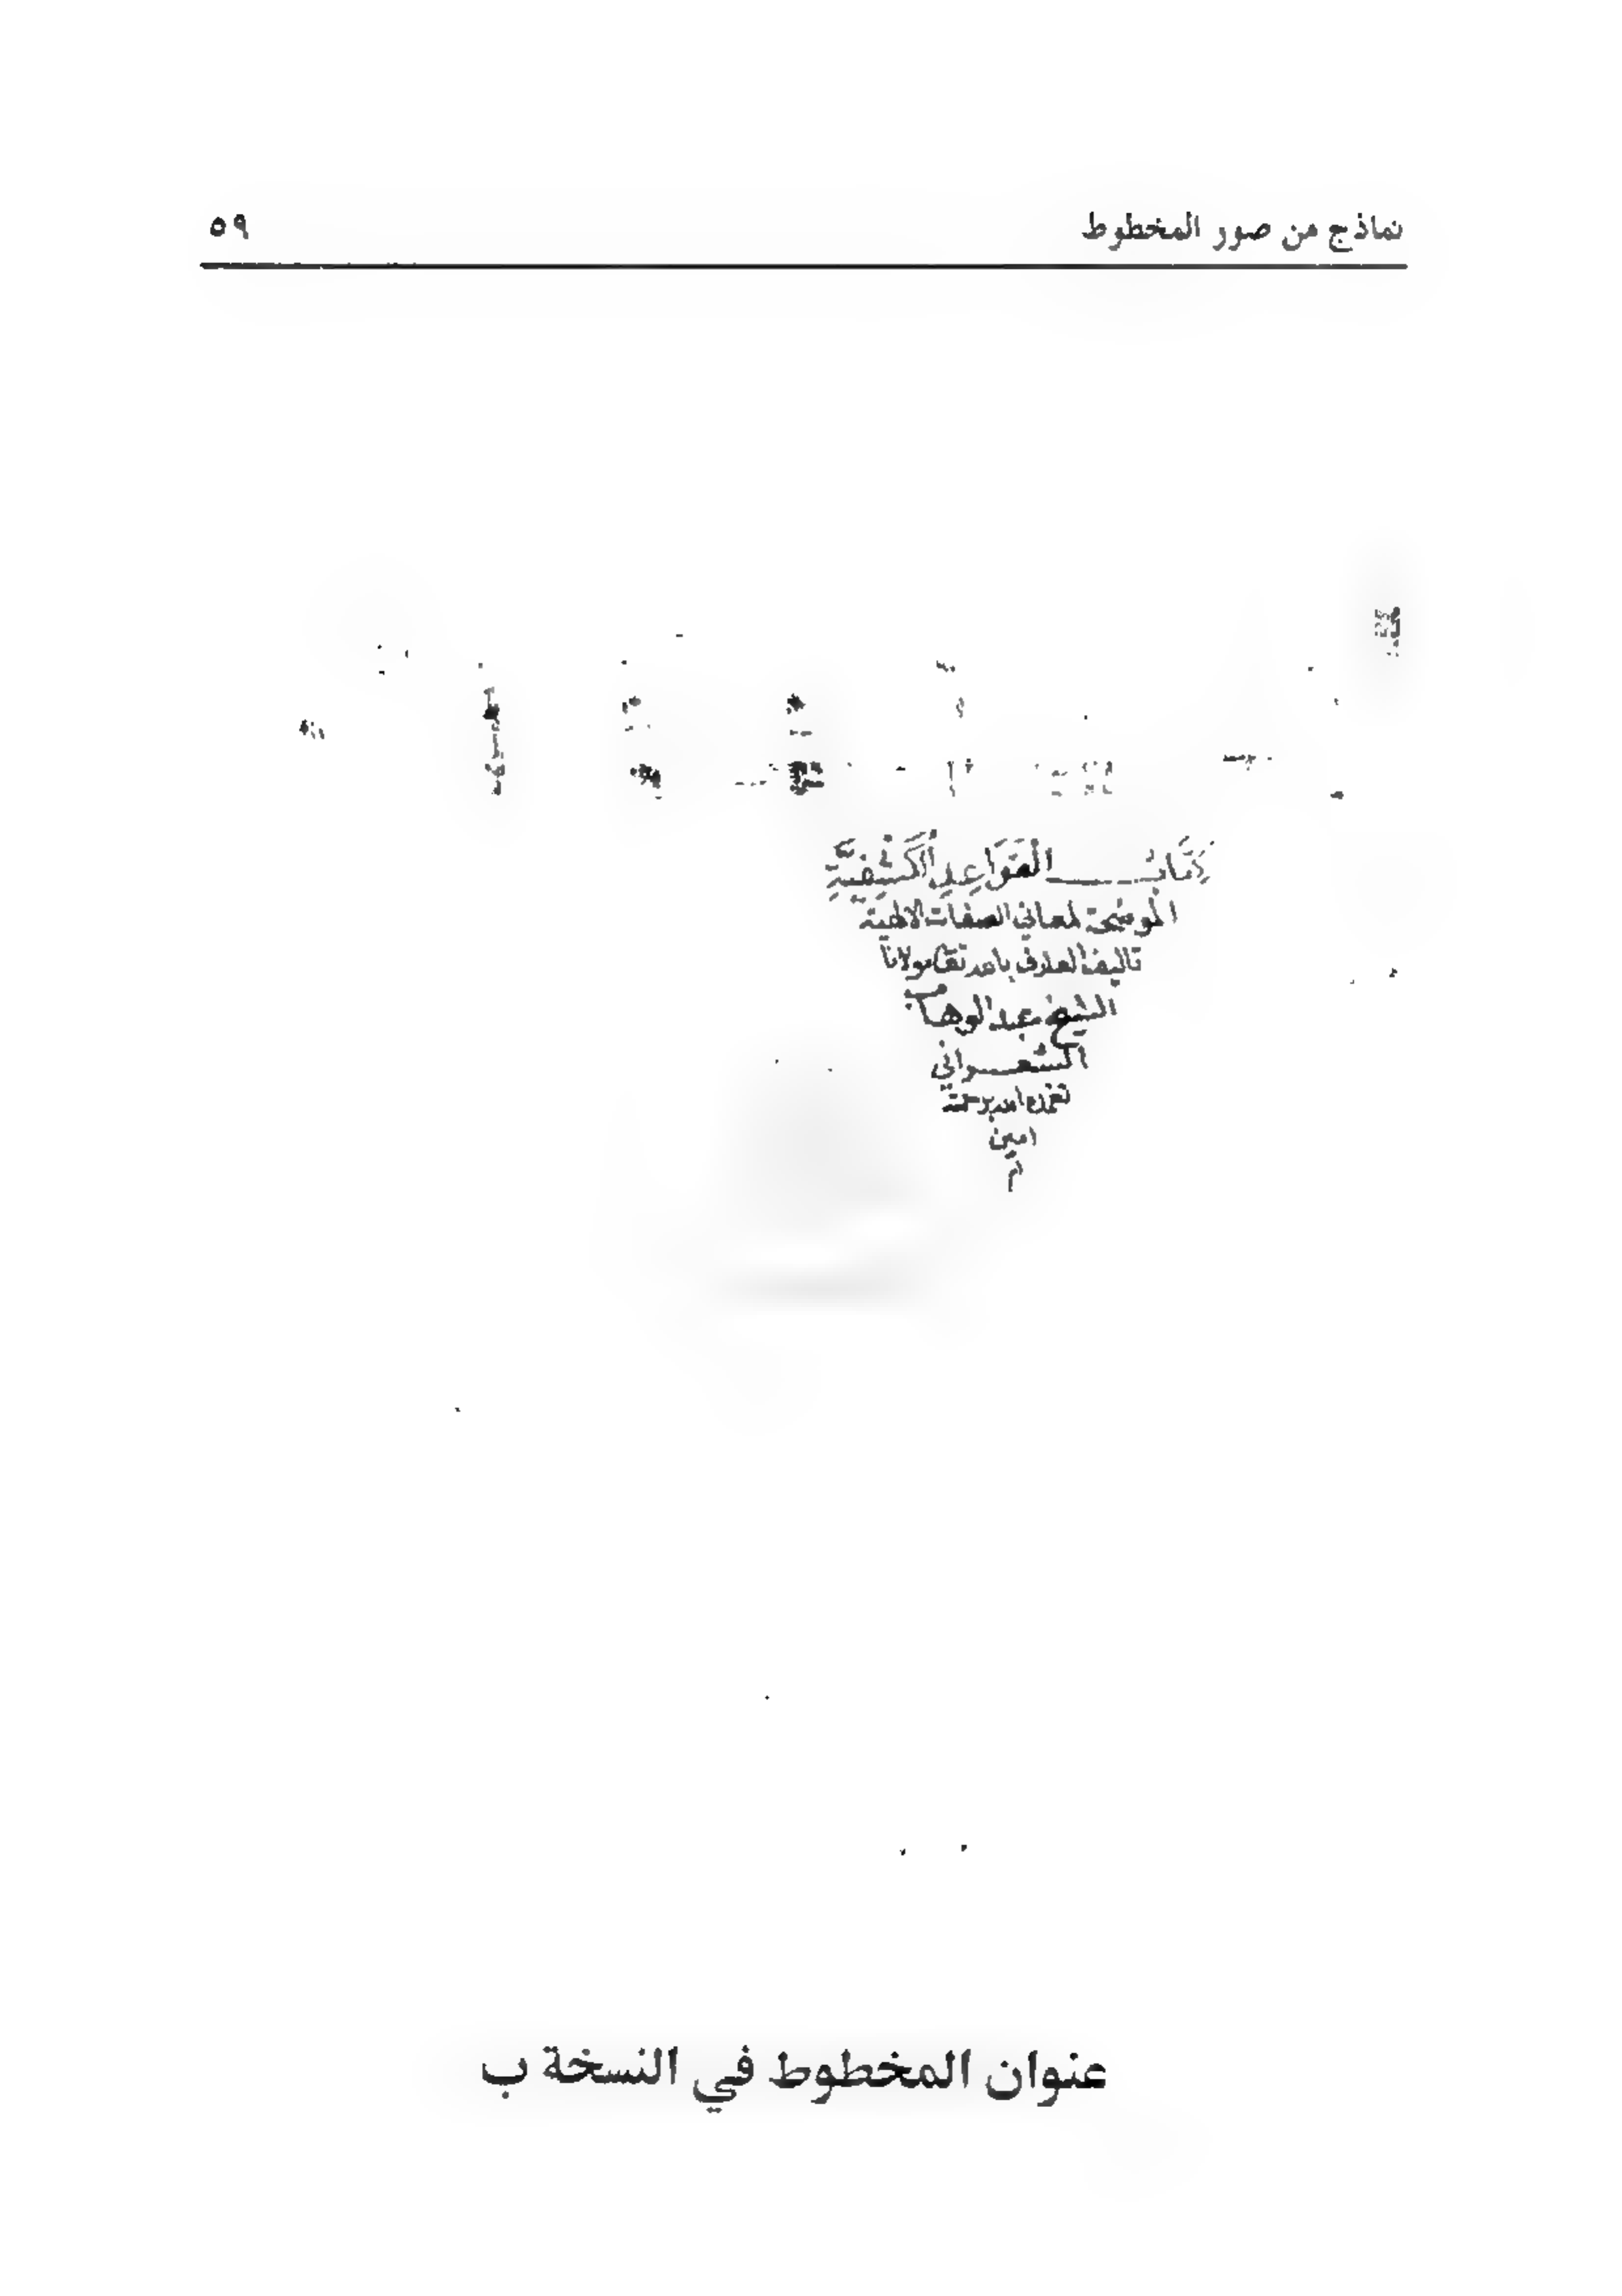 نماذج من صور المخطوط ٥٩
كِتَابُ القَوَاعِدِ الكَشْفِيَّةِ
الموضحة لمعاني الصفات الالهية
تاليف العارف بالله تعا مولانا
الشيخ عبد الوهاب
الشعراني
تغمده الله برحمته
امين
م
عنوان المخطوط في النسخة ب